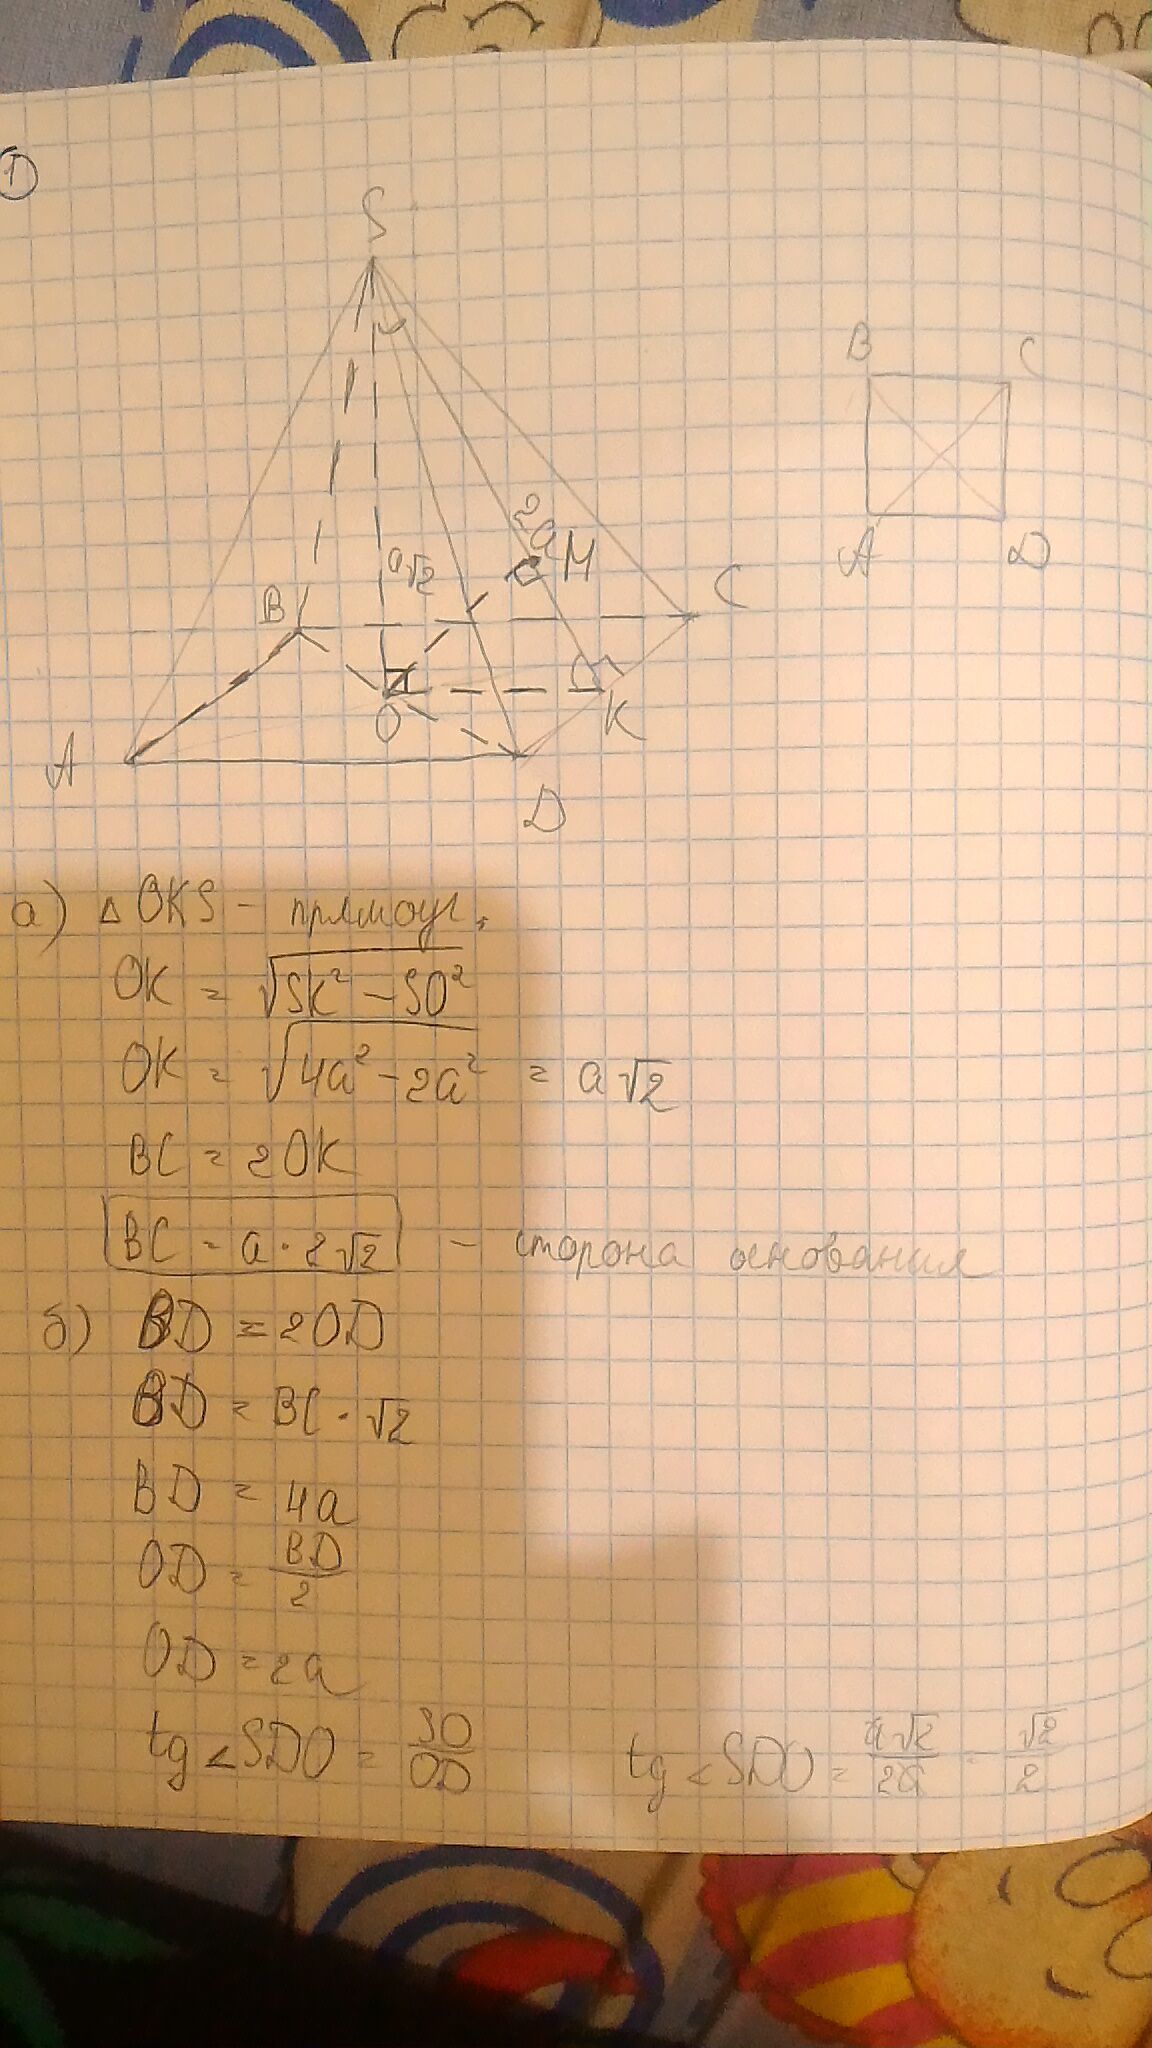 1
S
B
C
2a
M
a√2
B
C
A
D
O
K
A
D
а) △OKS - прямоуг.
OK = √SK² - SO²
OK = √4a² - 2a² = a√2
BC = 2OK
BC = a · 2√2 - сторона основания
б) BD = 2OD
BD = BC · √2
BD = 4a
OD = BD/2
OD = 2a
tg ∠SDO = SO/OD tg ∠SDO = a√2/2a = √2/2